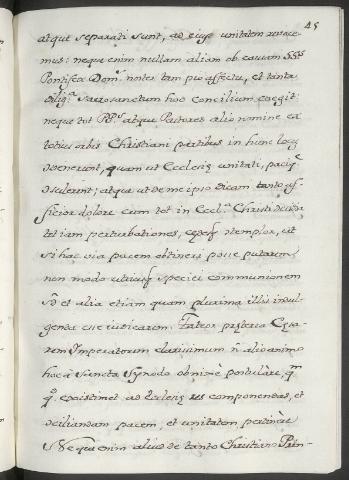 45
atque separati sunt, ad eius unitatem revoce-
mus: neque enim nullam aliam ob causam SSs
Pontifex Domˢ noster tam pio affectu, et tanta
diligª Sacrosanctum hoc Concilium coegit:
neque tot PPˢ atque Pastores alio nomine ex
totius orbis Christiani partibus in hunc locũ
convenerunt, quam ut Ecclesię unitati, paciq́
consulerent; atque ut de me ipso dicam tanto af-
ficior dolore cum tot in Eccl.ª Christi
tetiam perturbationes, contemplor, ut
si hac via pacem obtineri posse putarem
non modo utriusq́ speciei communionem
sed et alia etiam quam plurima illis indul-
genda esse iudicarem. Fateor pręterea Cęsa-
rem Imperatorem clarissimum ñ alio animo
hoc a Sancta Synodo obnixè postulare, qᵐ
qᵈ existimet ad Ecclesię res componendas, et
conciliandam pacem, et unitatem pertinere
Neque enim aliud de tanto Christiano Prin-